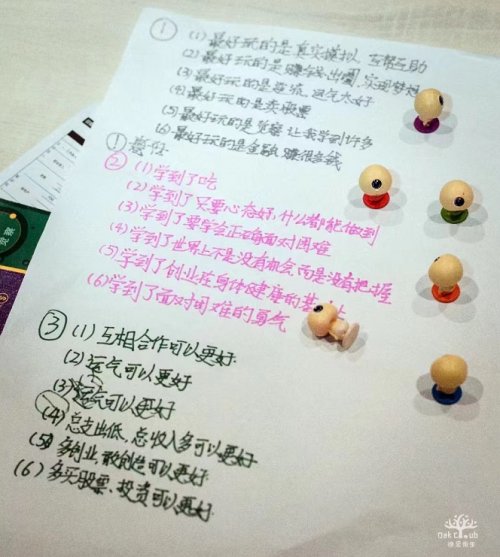 ①
(1) 最好玩的是真实模拟，互帮互助
(2) 最好玩的是赚钱出圈，实现梦想
(3) 最好玩的是 运气太好
(4) 最好玩的是卖股票
(5) 最好玩的是 让我学到许多
(6) 最好玩的是金融 赚很多钱
①
② (1) 学到了吃
(2) 学到了只要心态好，什么都能做到
(3) 学到了要学会正确面对困难
(4) 学到了世界上不是没有机会而是没有把握
(5) 学到了创业在身体健康的基
(6) 学到了面对困难的勇气
③ (1) 互相合作可以更好
(2) 运气可以更好
(3) 运气可以更好
(4) 总支出低，总收入多可以更好
(5) 多创业，敢创造可以更好
(6) 多买股票、投资可以更好